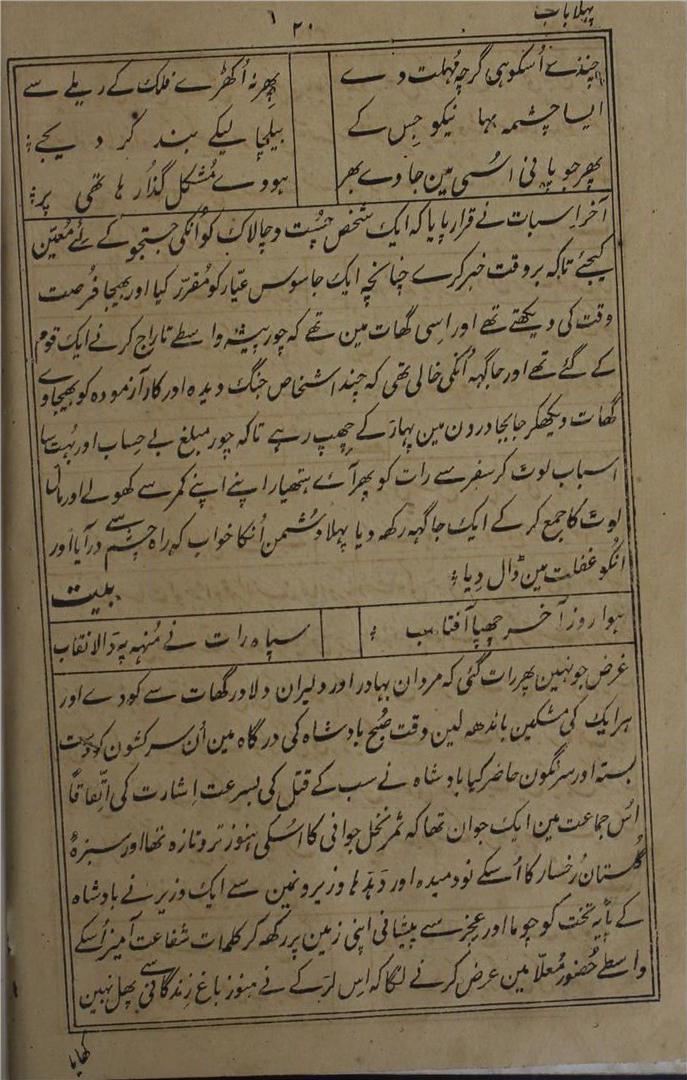 پہلا باب
۲۰
۱
چندے اُسکو ہی گرچہ مُہلت دے
پھر نہ اُکھڑے فلک کے ریلے سے
ایسا چشمہ بہا نیکو جس کے
بیلچا لیکے بند کر دیجے
پھر جو پانی اسی مین جاوے بھر
ہووے مُشکل گذارہا تھی پر
آخر اسبات نے قرار پایا کہ ایک شخص چُست وچالاک کو اُنکی جستجو کے لئے مُعیّن
کیجئے تاکہ بروقت خبر کرے چنانچہ ایک جاسوس عیّار کو مُقرّر کیا اور بھیجا فُرصت
وقت کی دیکھتے تھے اور اسی گھات مین تھے کہ چور پیشہ واسطے تاراج کرنے ایک قوم
کے گئے تھے اور جاگہہ اُنکی خالی تھی کہ چند اشخاص جنگ دیدہ اور کار آزمودہ کو بھیجا وے
گھات دیکھکر جابجا درون مین پہاڑ کے چھپ رہے تاکہ چور مبلغ بے حساب اور بُہت سا
اسباب لوٹ کر سفر سے رات کو پھر آئے ہتھیار اپنے اپنے کمر سے کھولے اور مال
لوٹ کا جمع کر کے ایک جاگہہ رکھدیا پہلا دُشمن اُنکا خواب کہ راہ چشم سے درآیا اور
انکو غفلت مین ڈال دیا
بیت
ہوا روز آخر چھپا آفتاب
سپاہ رات نے مُنہہ پہ ڈالا نقاب
غرض جو نہین پھر رات گئی کہ مردان بہادر اور دلیران دلاور گھات سے کودے اور
ہر ایک کی مشکین باندھہ لین وقت صُبح بادشاہ کی درگاہ مین اُن سرکشون کو دست
بستہ اور سرنگون حاضر کیا بادشاہ نے سب کے قتل کی بسرعت اشارت کی اتّفاقاً
اُس جماعت مین ایک جوان تھا کہ ثمر نخل جوانی کا اُسکی ہنوز تر و تازہ تھا اور سبزۂ
گُلستان رُخسار کا اُسکے نو دمیدہ اور وزیرونمین سے ایک وزیر نے بادشاہ
کے پایۂ تخت کو چوما اور عجز سے پیشانی اپنی زمین پر رکھہ کر کلمات شفاعت آمیز اُسکے
واسطے حُضور مُعلّا مین عرض کرنے لگا کہ اِس لڑکے نے ہنوز باغ زندگانی سے پھل نہین
کھایا